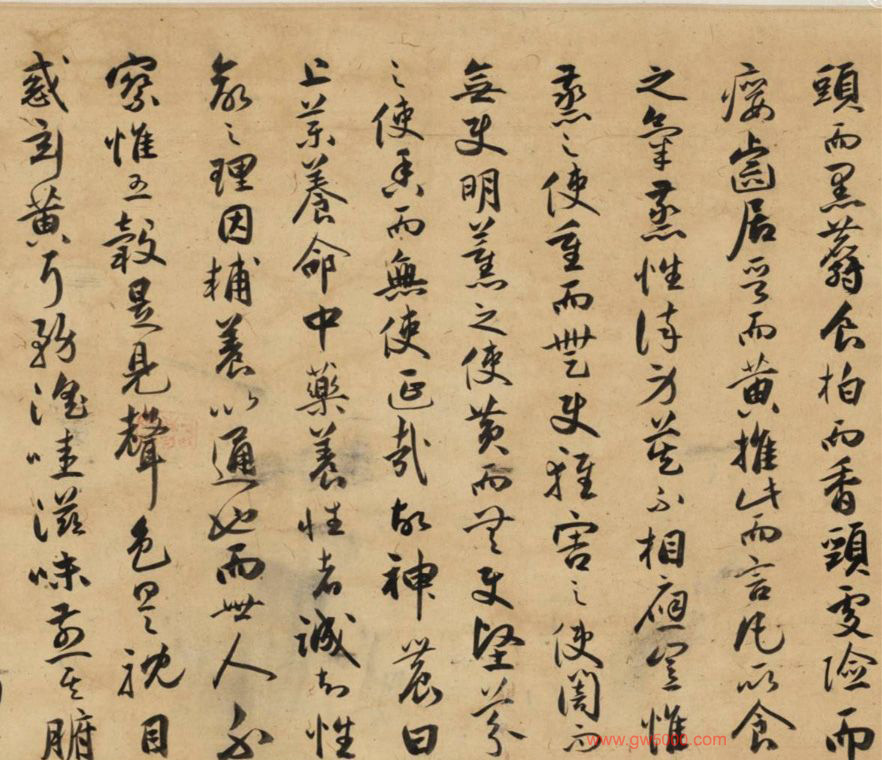 頭而黑麝食柏而香頸處險而
癭齒居晉而黃推此而言凡所食
之氣蒸性染身莫不相應豈惟
蒸之使重而無使輕害之使闇而
無使明薰之使黃而無使堅芬
之使香而無使延哉故神農曰
上藥養命中藥養性者誠知性
命之理因輔養以通也而世人不
察惟五穀是見聲色是耽目
惑玄黃耳務淫哇滋味煎其腑
www.gw5000.com